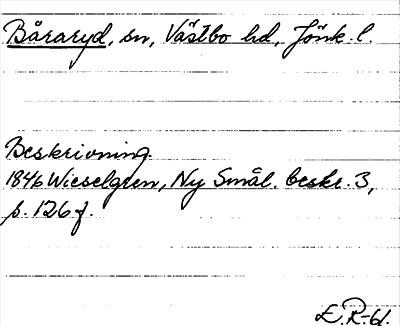 Båraryd, sn, Västbo hd, Jönk. l.
Beskrivning.
1846 Wieselgren, Ny Smål. beskr. 3,
p. 126 f.
E.R-61.